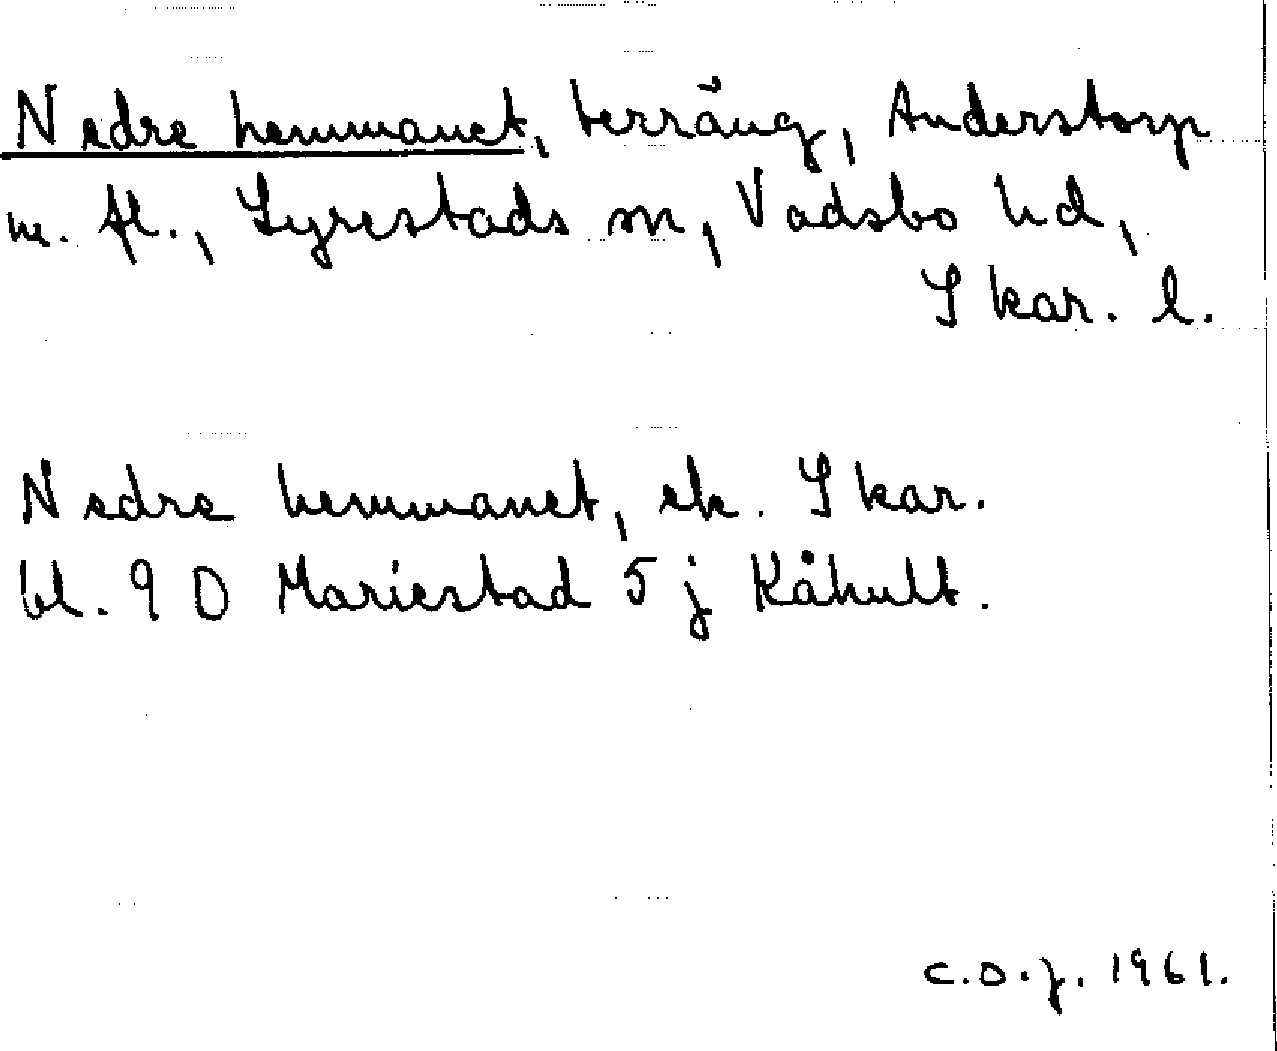 Nedre hemmanet, terräng, Anderstorp
m. fl., Lyrestads sn, Vadsbo hd,
Skar. l.
Nedre hemmanet, ek. Skar.
bl. 9 D Mariestad 5 j Kåhult.
C.O.J. 1961.